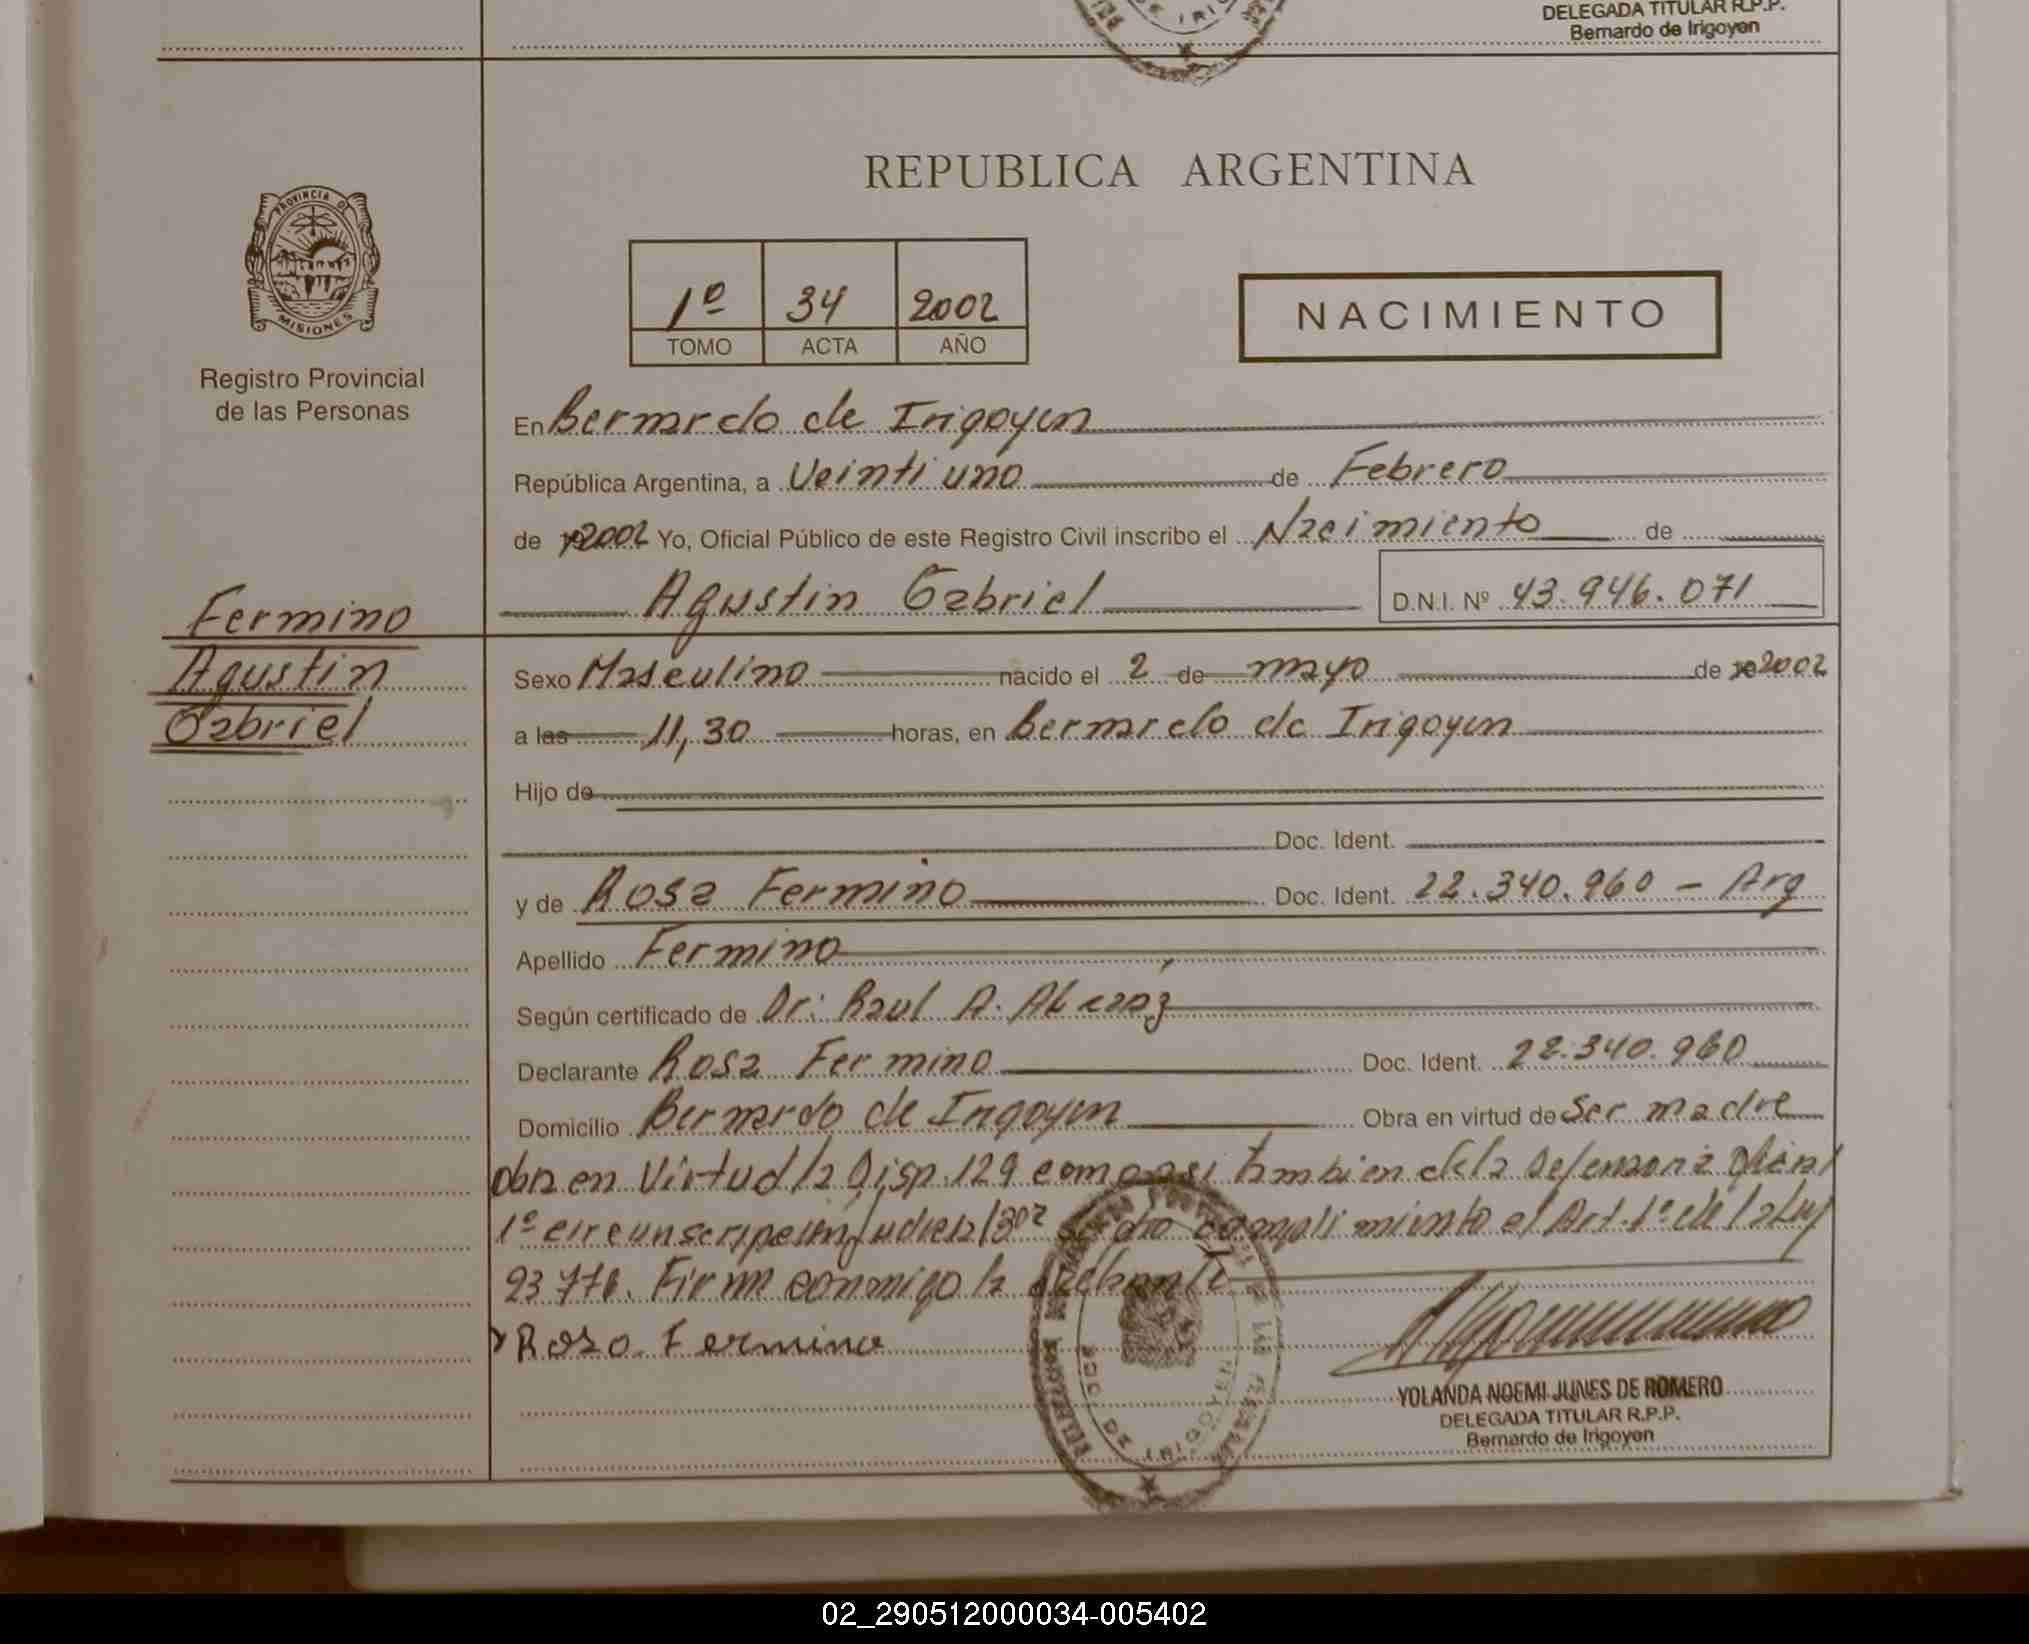 DELEGADA TITULAR R.P.P.
Bernardo de Irigoyen
REPUBLICA ARGENTINA
PROVINCIA DE
MISIONES
Registro Provincial
de las Personas
1º 34 2002
TOMO ACTA AÑO
NACIMIENTO
En Bernardo de Irigoyen
República Argentina, a Veinti uno de Febrero
de 2002 Yo, Oficial Público de este Registro Civil inscribo el Nacimiento de
Agustin Gabriel D.N.I. Nº 43.946.071
Fermino
Agustin
Gabriel
Sexo Masculino nacido el 2 de mayo de 2002
a las 11,30 horas, en Bernardo de Irigoyen
Hijo de
Doc. Ident.
y de Rosa Fermino Doc. Ident. 22.340.960 - Arg
Apellido Fermino
Según certificado de Dr: Raul A.
Declarante Rosa Fermino Doc. Ident. 22.340.960
Domicilio Bernardo de Irigoyen Obra en virtud de Ser madre
obra en Virtud la Disp. 129 como asi tambien de la Defensoria
1º circunscripcion Judicial cumplimiento el Art. 1º de la Ley
Firma conmigo la
Rosa Fermino
IRIGOYEN
YOLANDA NOEMI JUNES DE ROMERO
DELEGADA TITULAR R.P.P.
Bernardo de Irigoyen
02_290512000034-005402